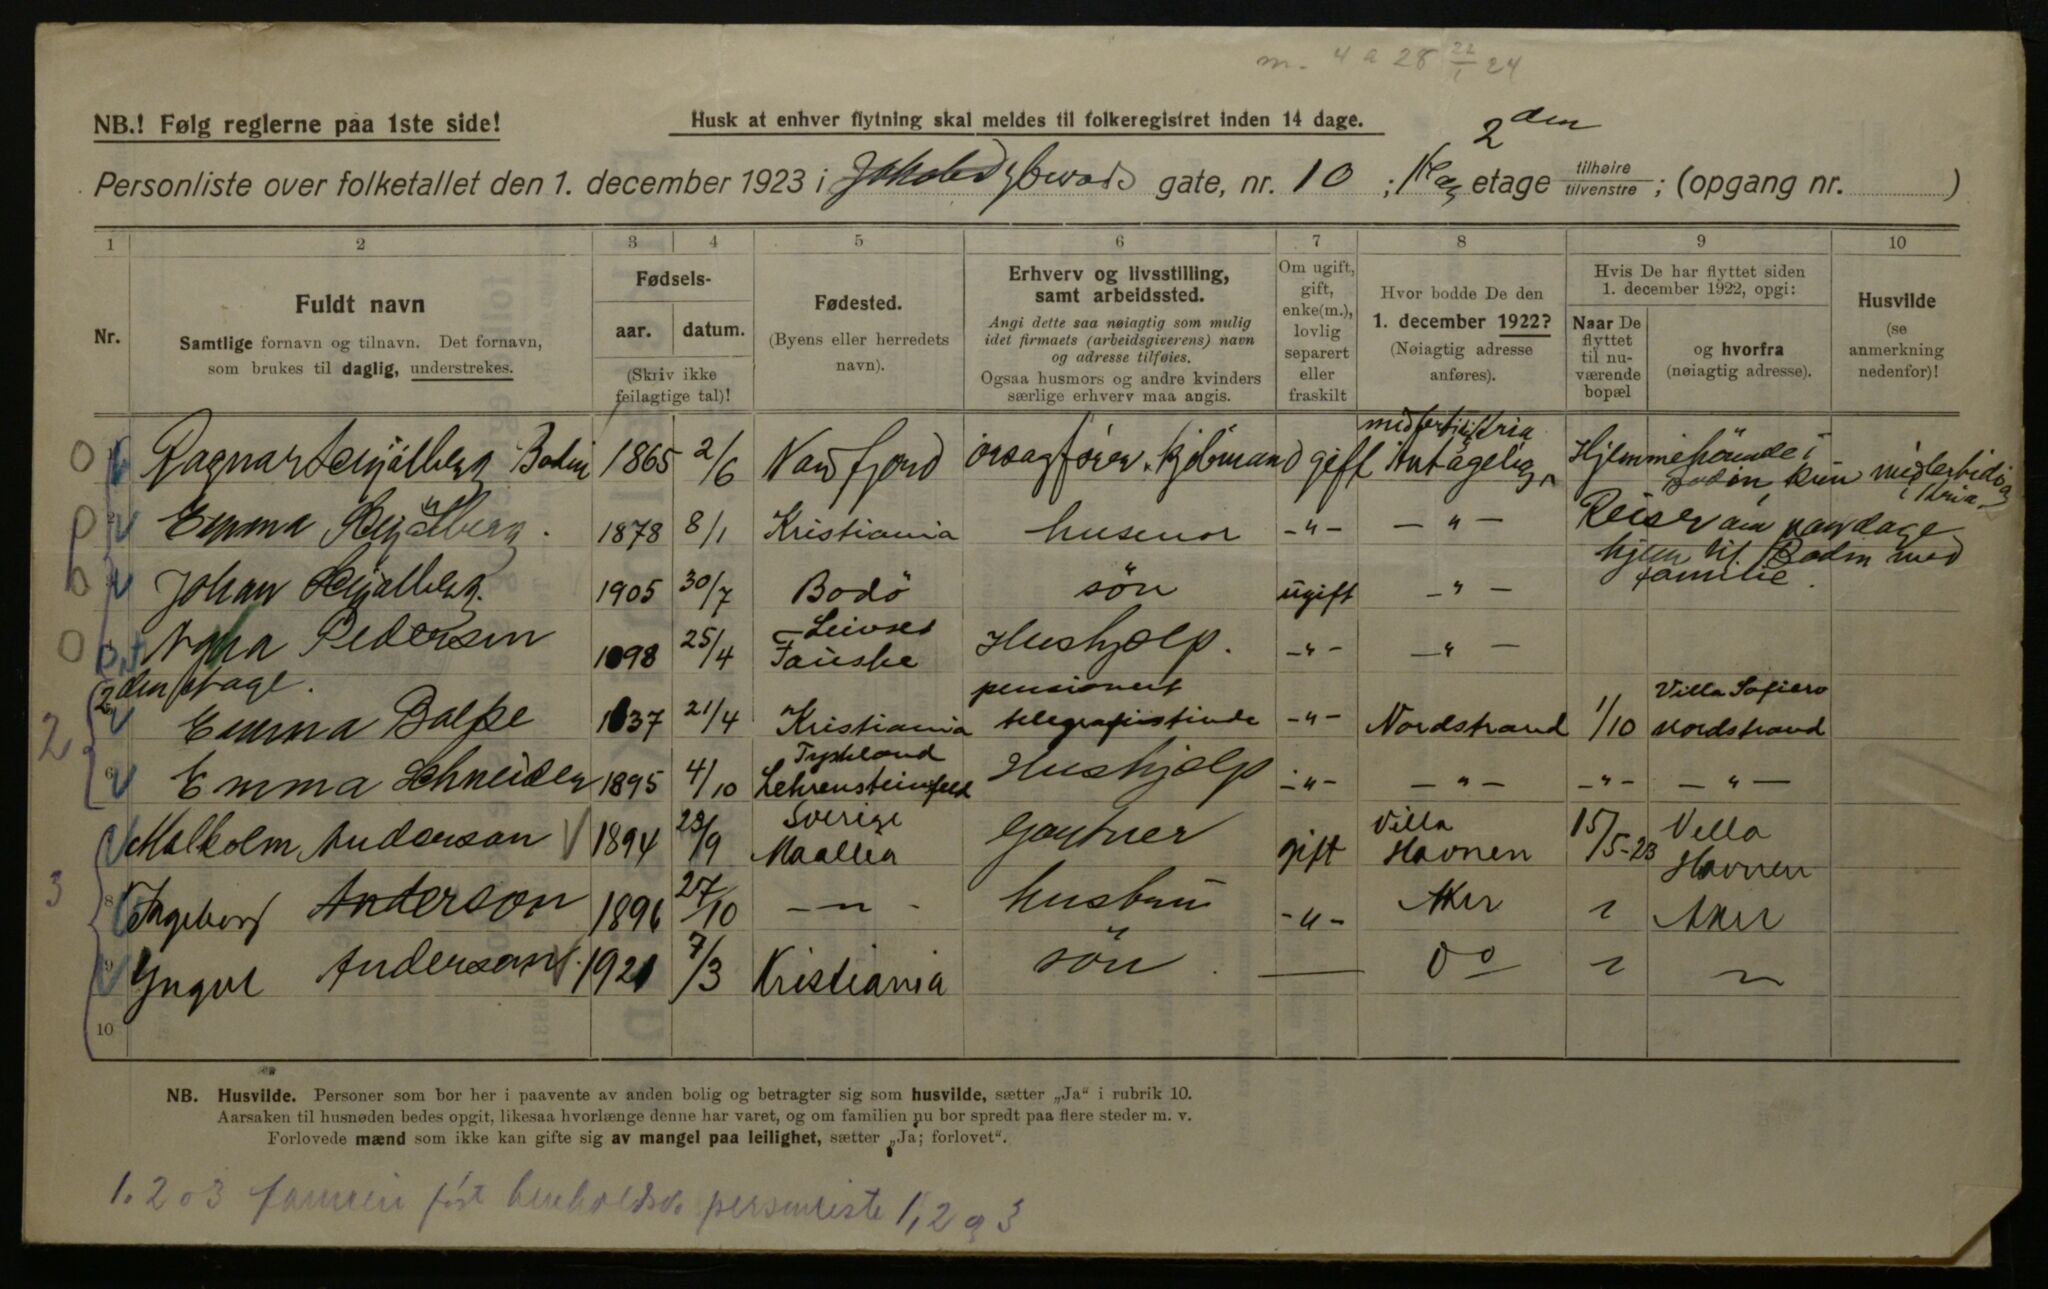 m. 4 a 28 22/1 24
NB.! Følg reglerne paa 1ste side!
Husk at enhver flytning skal meldes til folkeregistret inden 14 dage.
2den
Personliste over folketallet den 1. december 1923 i gate, nr. 10 ; etage tilhøire tilvenstre ; (opgang nr. )
1 2 3 4 5 6 7 8 9 10
Nr.
Fuldt navn
Samtlige fornavn og tilnavn. Det fornavn,
som brukes til daglig, understrekes.
Fødsels-
aar. datum.
(Skriv ikke
feilagtige tal)!
Fødested.
(Byens eller herredets
navn).
Erhverv og livsstilling,
samt arbeidssted.
Angi dette saa nøiagtig som mulig
idet firmaets (arbeidsgiverens) navn
og adresse tilføies.
Ogsaa husmors og andre kvinders
særlige erhverv maa angis.
Om ugift,
gift,
enke(m.),
lovlig
separert
eller
fraskilt
Hvor bodde De den
1. december 1922?
(Nøiagtig adresse
anføres).
Hvis De har flyttet siden
1. december 1922, opgi:
Naar De
flyttet
til nu-
værende
bopæl
og hvorfra
(nøiagtig adresse).
Husvilde
(se
anmerkning
nedenfor)!
Ragnar Schjølberg Bodin 1865 2/6 kjöbmand gift Hjemmehörende i
Bodin, kun
Emma Schjølberg. 1878 8/1 Kristiania husmor -"- - " - Reiser om pardage
hjem til Bodin med
familie.
Johan Schjølberg. 1905 30/7 Bodö sön ugift - " -
Pedersen 1898 25/4 Leivset Fauske Hushjælp. -"- - " -
2den etage.
Emma Balke 1837 21/4 Kristiania pensionert telegrafistinde -"- Nordstrand 1/10 Villa Sofiero Nordstrand
6 Emma Schneider 1895 4/10 Tyskland Lehrensteinsfeld Hushjælp -"- - " - -"- - " -
Malkolm Anderson 1894 28/9 Sverige Gartner gift Villa Havnen 15/5-23 Villa Havnen
8 Ingeborg Anderson 1896 27/10 - " - hustru -"- Aker " Aker
9 Yngve Anderson 1921 7/3 Kristiania sön. — Do " "
10
2
3
NB. Husvilde. Personer som bor her i paavente av anden bolig og betragter sig som husvilde, sætter „Ja“ i rubrik 10.
Aarsaken til husnøden bedes opgit, likesaa hvorlænge denne har varet, og om familien nu bor spredt paa flere steder m. v.
Forlovede mænd som ikke kan gifte sig av mangel paa leilighet, sætter „Ja; forlovet“.
1. 2 o 3 personliste 1, 2 og 3